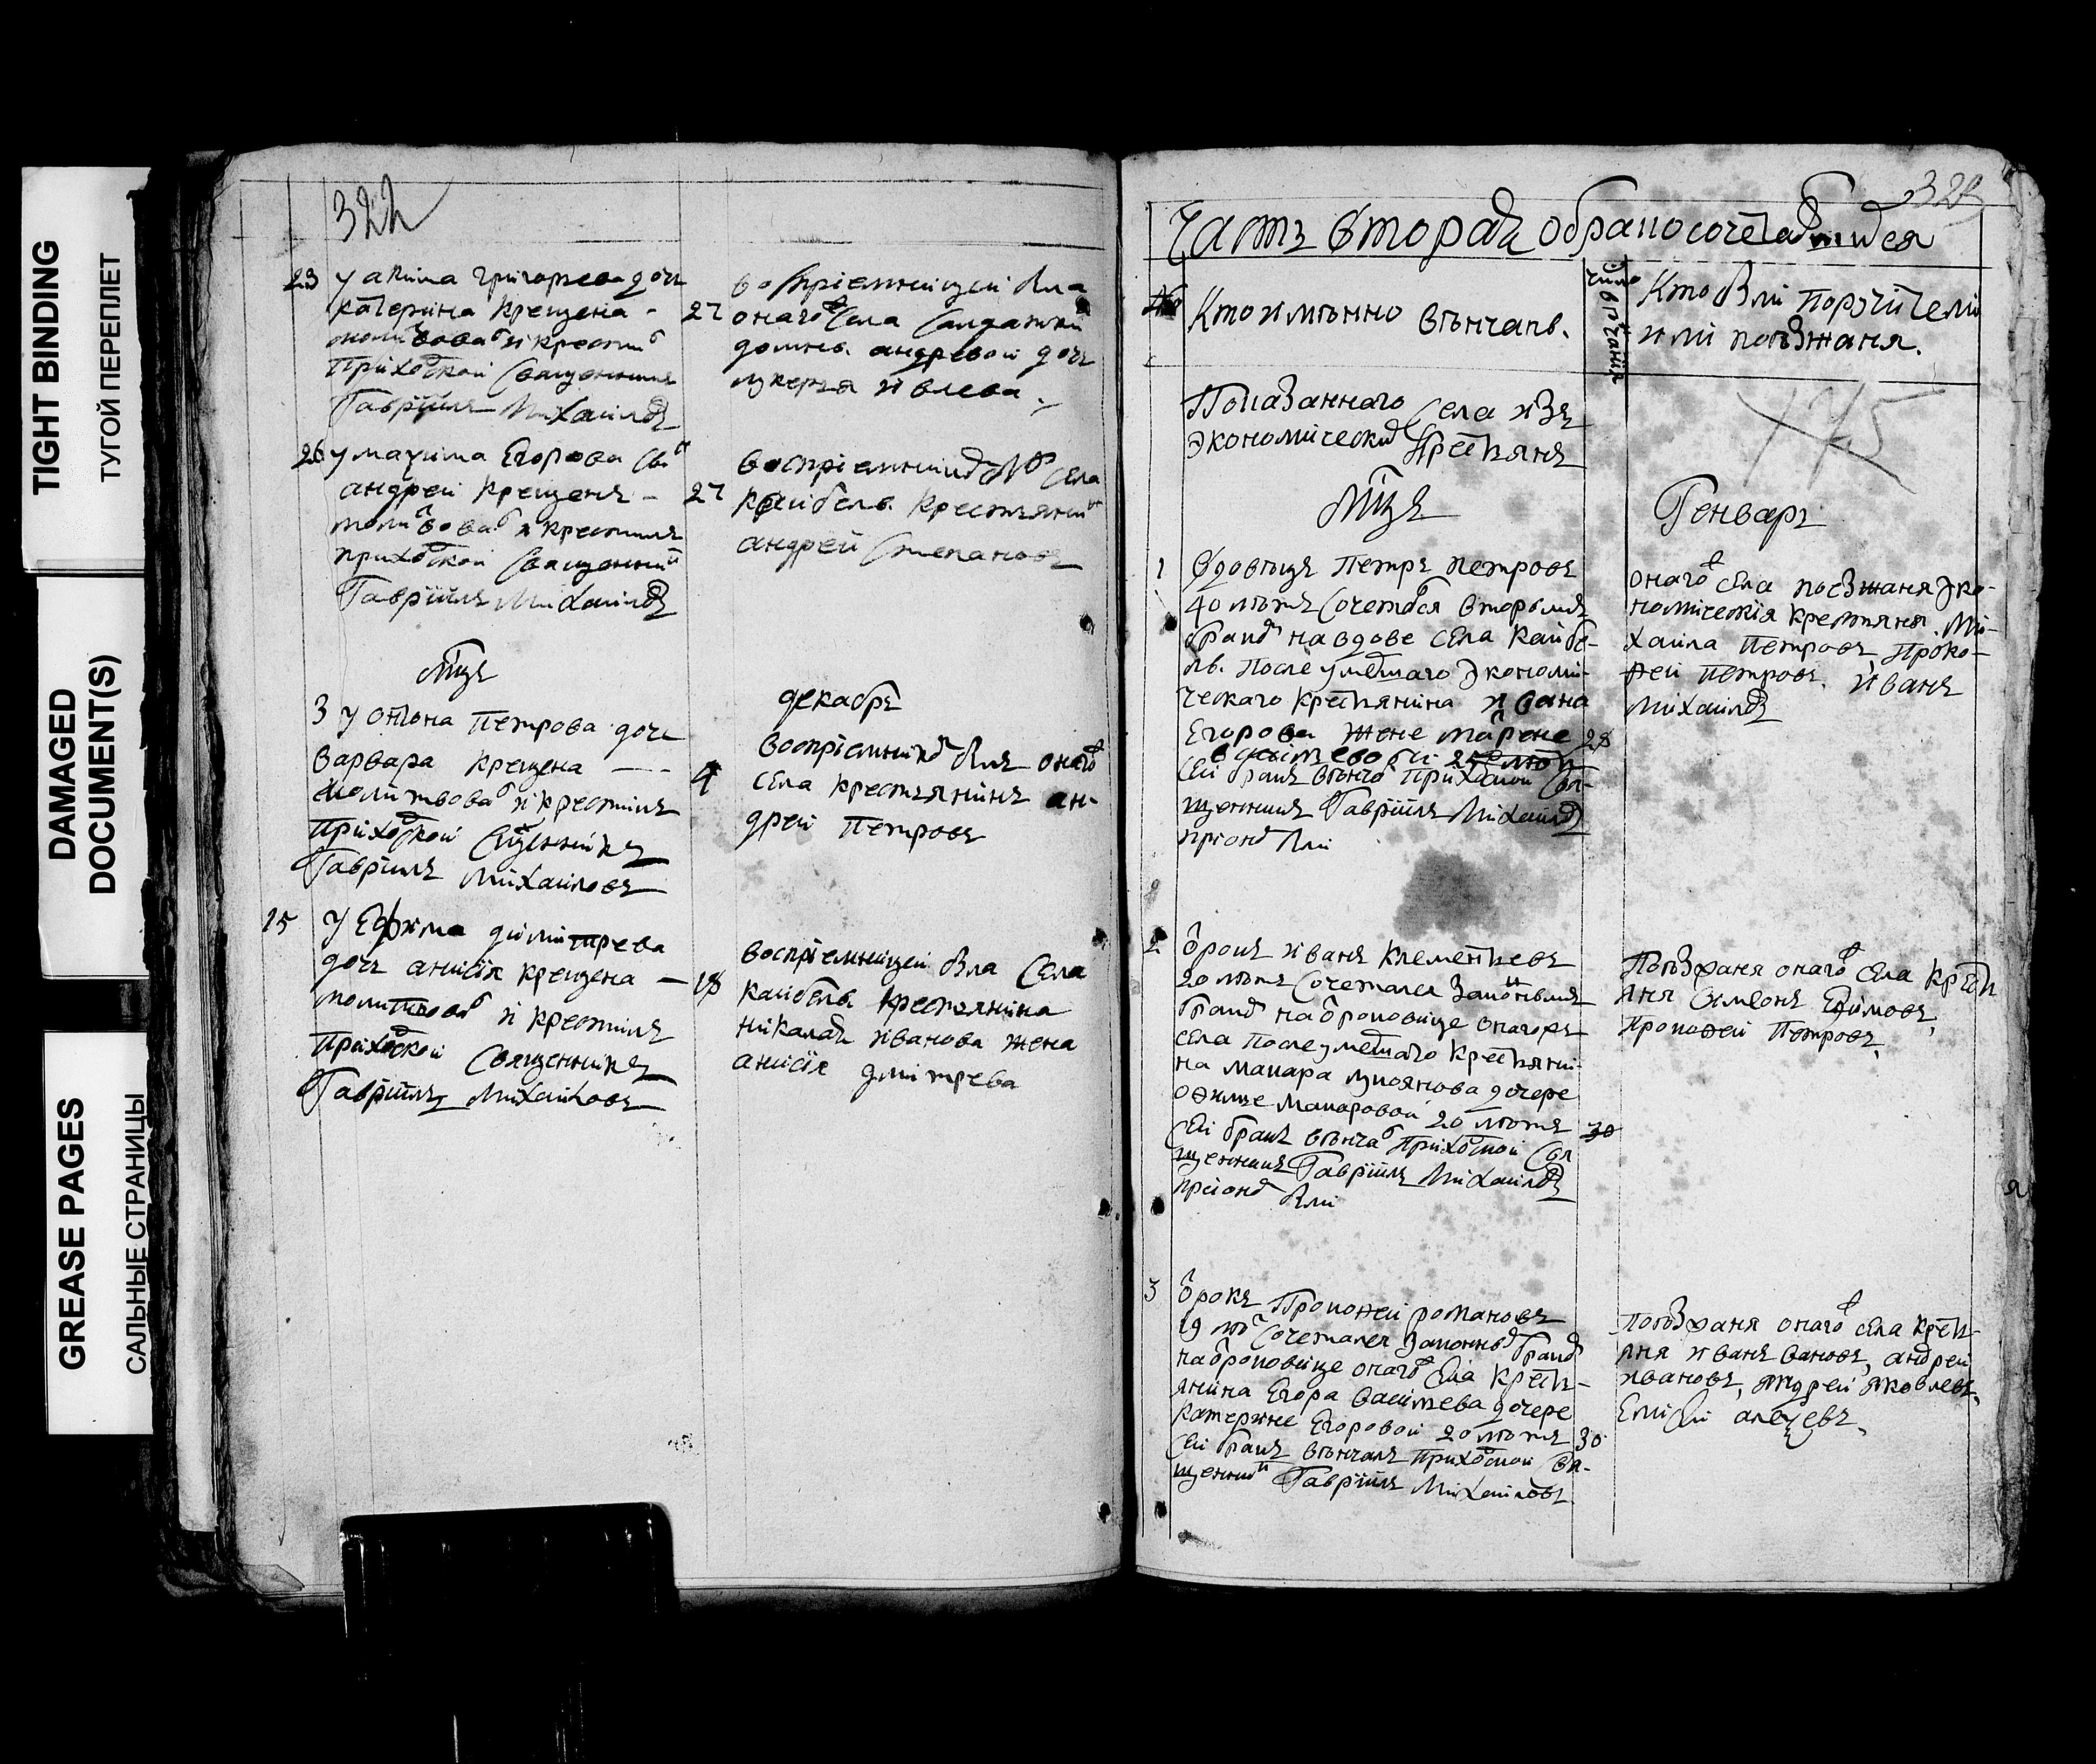 TIGHT BINDING
ТУГОЙ ПЕРЕПЛЕТ
DAMAGED
DOCUMENT(S)
GREASE PAGES
САЛЬНЫЕ СТРАНИЦЫ
322
23 у акима григорьева дочь
катерина крещена -
молитвова и крестил
приходской священникъ
Гавріилъ Михаиловъ
восприемницей была
27 онаго села
андревой дочь
лукерья
26 у маѯима Егорова
андрей крещенъ -
молитвова и крестилъ
приходской священникъ
Гавріилъ Михаиловъ
восприемникомъ села
27 каибелъ крестьянинъ
андрей степановъ
мцъ
декабрь
3 у Петрова дочь
варвара крещена -
молитвова и крестилъ
приходской сщенникъ
Гавріилъ Михаиловъ
восприемникъ былъ онаго
4 села крестьянинъ ан-
дрей Петровъ
15 у Ефима димитрева
дочь анисія крещена -
молитвова и крестилъ
приходской священникъ
Гавріилъ Михаиловъ
восприемницей была села
18 каибелъ крестьянина
никалая иванова жена
анисія дмитрева
323
Часть вторая о бракосочетавшихся
Кто имянно венчанъ.
число венчания
Кто были поручители
или поѣзжаня.
Показаннаго села изъ
экономическихъ крестьянъ
445
мцъ
Генварь
1 вдовецъ Петръ петровъ
40 лѣтъ сочетався вторымъ
бракомъ на вдове села каибе-
лъ после умершаго экономи-
ческаго крестьянина ивана
Егорова жене марене 28
сей бракъ венча приходской свя-
щенникъ Гавріилъ Михаиловъ
при ономъ были
онаго села поезжаня эко-
номическія крестьяня Ми-
хаила Петровъ, Проко-
фей Петровъ, иванъ
михаиловъ
2 отрокъ иванъ клементьевъ
20 лѣтъ сочетался законнымъ
бракомъ на отроковице онагожъ
села после умершаго крестьяни-
на макара лукоянова дочере
офимье макаровой 20 лѣтъ 30
сей бракъ венча приходской свя
щенникъ Гавріилъ Михаиловъ
при ономъ были
Поѣзжаня онаго села кресть
яня Симеонъ Ефимовъ,
Прокофей Петровъ,
3 отрокъ Прокофей романовъ
19 лѣ сочетался законнымъ бракомъ
на отроковице онаго села кресть-
янина Егора васильева дочере
катерине Егоровой 20 лѣтъ 30
сей бракъ венчалъ приходской свя-
щенникъ Гавріилъ Михаиловъ
поѣзжаня онаго села кресть-
яня иванъ вановъ, андрей
ивановъ, андрей яковлевъ,